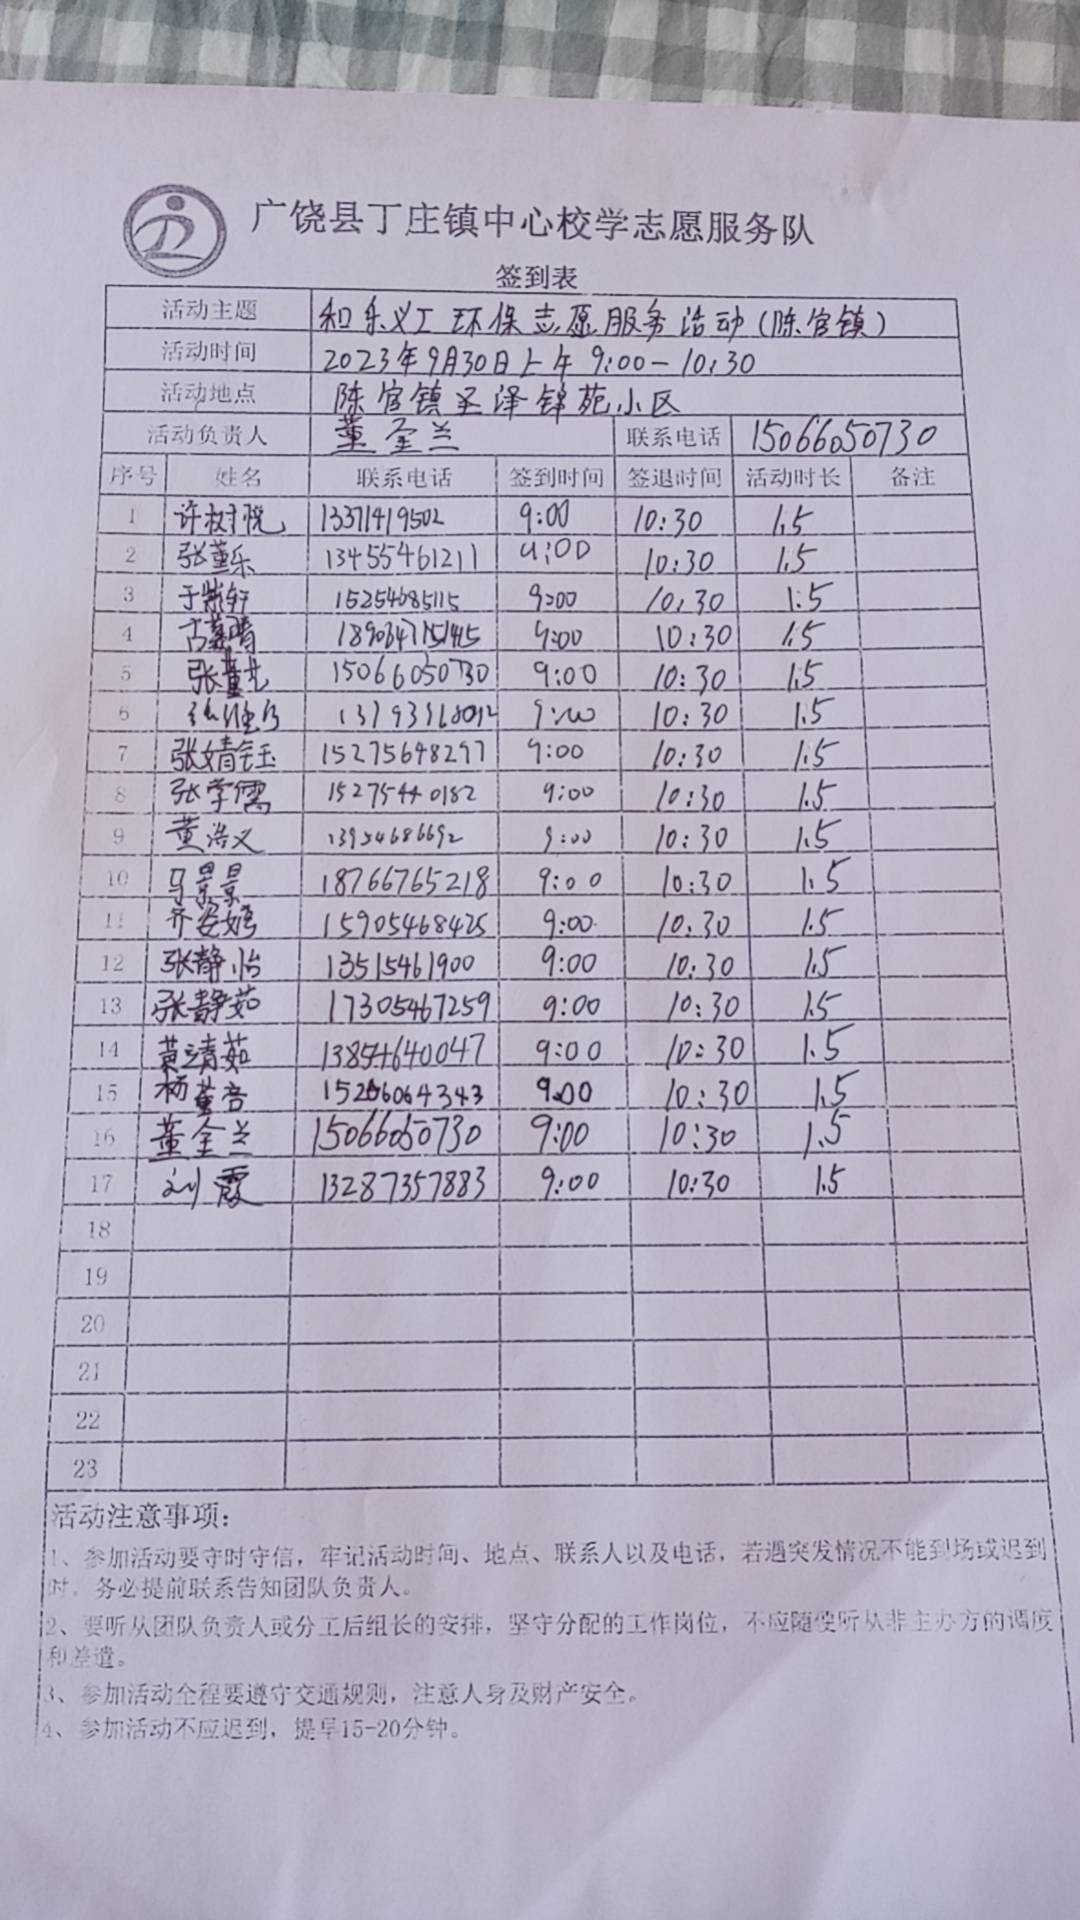 广饶县丁庄镇中心校学志愿服务队
签到表
活动主题 和乐义工环保志愿服务活动(陈官镇)
活动时间 2023年9月30日上午 9:00-10:30
活动地点 陈官镇圣泽锦苑小区
活动负责人 董全兰 联系电话 15066050730
序号 姓名 联系电话 签到时间 签退时间 活动时长 备注
1 许树悦 13371419502 9:00 10:30 1.5
2 张董乐 13455461211 9:00 10:30 1.5
3 于紫轩 15254685115 9:00 10:30 1:5
4 9:00 10:30 1.5
5 15066050730 9:00 10:30 1.5
6 10:30 1.5
7 张婧钰 15275648297 9:00 10:30 1.5
8 张学儒 15275440182 9:00 10:30 1.5
9 黄浩义 13954686692 9:00 10:30 1.5
10 马景景 18766765218 9:00 10:30 1.5
11 齐姿嫣 15905468425 9:00 10:30 1.5
12 张静怡 13515461900 9:00 10:30 1.5
13 张静茹 17305467259 9:00 10:30 1.5
14 黄靖茹 13854640047 9:00 10:30 1.5
15 杨董音 15266064343 9:00 10:30 1.5
16 董全兰 15066050730 9:00 10:30 1.5
17 刘霞 13287357883 9:00 10:30 1.5
18
19
20
21
22
23
活动注意事项:
1、参加活动要守时守信，牢记活动时间、地点、联系人以及电话，若遇突发情况不能到场或迟到
时，务必提前联系告知团队负责人。
2、要听从团队负责人或分工后组长的安排，坚守分配的工作岗位，不应随便听从非主办方的调度
和差遣。
3、参加活动全程要遵守交通规则，注意人身及财产安全。
4、参加活动不应迟到，提早15-20分钟。